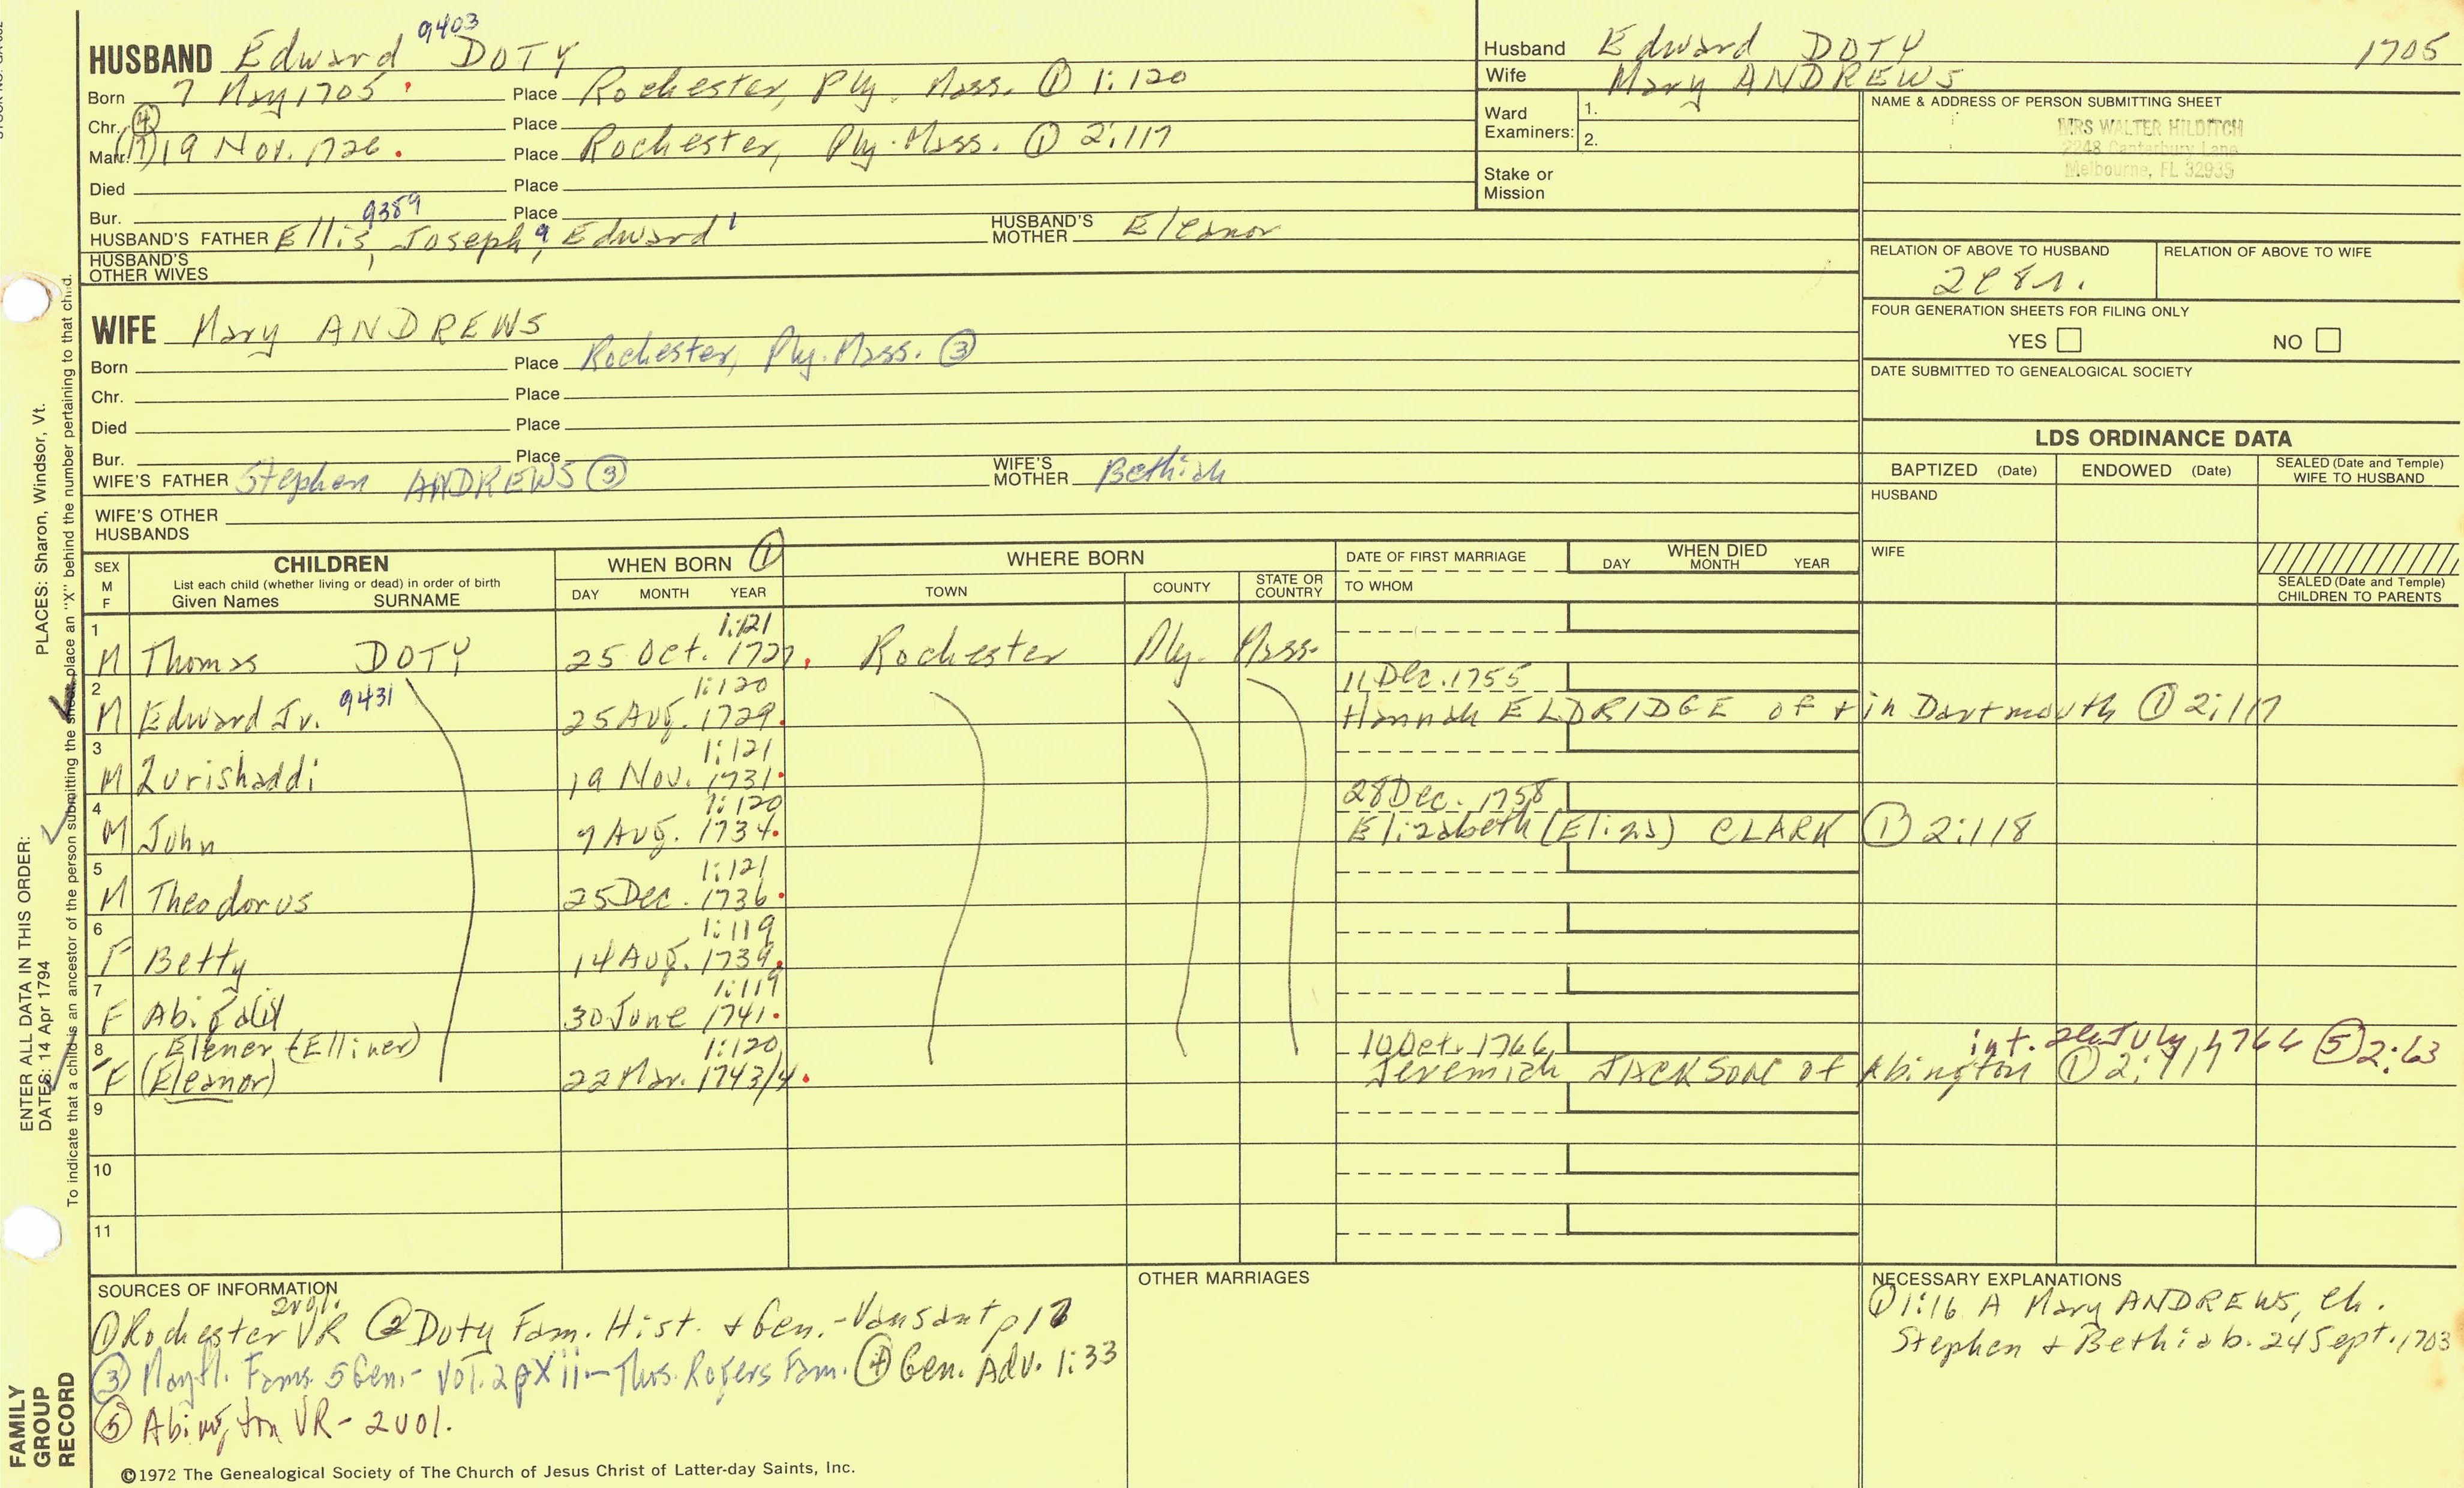 HUSBAND Edward 9403 DOTY
Born 7 May 1705 Place Rochester, Ply. Mass. ① 1:120
Chr. ④ Place
Marr. ① 19 Nov. 1726 Place Rochester, Ply. Mass. ① 2:117
Died Place
Bur. Place
9389
HUSBAND'S FATHER Ellis, Joseph, Edward HUSBAND'S MOTHER Eleanor
HUSBAND'S OTHER WIVES
WIFE Mary ANDREWS
Born Place Rochester, Ply. Mass. ③
Chr. Place
Died Place
Bur. Place
WIFE'S FATHER Stephen ANDREWS ③ WIFE'S MOTHER Bethiah
WIFE'S OTHER HUSBANDS
Husband Edward DOTY 1705
Wife Mary ANDREWS
Ward Examiners: 1.
2.
Stake or Mission
NAME & ADDRESS OF PERSON SUBMITTING SHEET
MRS WALTER HILDITCH
2248 Canterbury Lane
Melbourne, FL 32935
RELATION OF ABOVE TO HUSBAND RELATION OF ABOVE TO WIFE
FOUR GENERATION SHEETS FOR FILING ONLY
YES NO
DATE SUBMITTED TO GENEALOGICAL SOCIETY
LDS ORDINANCE DATA
BAPTIZED (Date) ENDOWED (Date) SEALED (Date and Temple) WIFE TO HUSBAND
HUSBAND
WIFE
SEALED (Date and Temple) CHILDREN TO PARENTS
SEX M F
CHILDREN
List each child (whether living or dead) in order of birth
Given Names SURNAME
WHEN BORN ①
DAY MONTH YEAR
WHERE BORN
TOWN COUNTY STATE OR COUNTRY
DATE OF FIRST MARRIAGE
TO WHOM
WHEN DIED
DAY MONTH YEAR
1 1:121
M Thomas DOTY 25 Oct. 1727. Rochester Ply. Mass.
2 1:120 11 Dec. 1755
M Edward Jr. 9431 25 Aug. 1729. Hannah ELDRIDGE of + in Dartmouth ① 2:117
3 1:121
M Zurishaddi 19 Nov. 1731.
4 1:120 28 Dec. 1758
M John 7 Aug. 1734. Elizabeth (Elizs) CLARK ① 2:118
5 1:121
M Theodorus 25 Dec. 1736.
6 1:119
F Betty 14 Aug. 1739.
7 1:119
F Abigail 30 June 1741.
8 Elener (Elliner) 1:120 10 Oct. 1766 int. July 1766 ⑤ 2:63
F (Eleanor) 22 Mar. 1743/4. Jeremiah JACKSON of Abington ① 2:117
9
10
11
SOURCES OF INFORMATION
2 vol.
① Rochester VR ② Doty Fam. Hist. + Gen. - Vansant
③ Mayfl. Fams. 5 Gen. - Vol. 2 p Xii - Thos. Rogers Fam. ④ Gen. Adv. 1:33
⑤ Abington VR - 2 vol.
OTHER MARRIAGES
NECESSARY EXPLANATIONS
① 1:16 A Mary ANDREWS, ch.
Stephen + Bethia b. 24 Sept. 1703
©1972 The Genealogical Society of The Church of Jesus Christ of Latter-day Saints, Inc.
FAMILY GROUP RECORD
ENTER ALL DATA IN THIS ORDER:
DATES: 14 Apr 1794
PLACES: Sharon, Windsor, Vt.
To indicate that a child is an ancestor of the person submitting the sheet, place an "X" behind the number pertaining to that child.